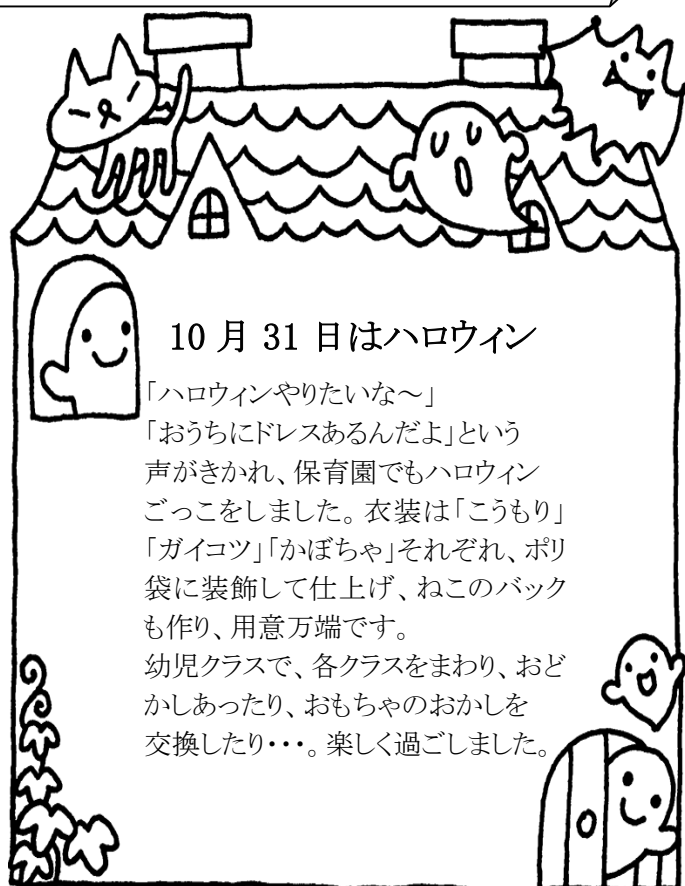 10 月 31 日はハロウィン
「ハロウィンやりたいな～」
「おうちにドレスあるんだよ」という
声がきかれ、保育園でもハロウィン
ごっこをしました。衣装は「こうもり」
「ガイコツ」「かぼちゃ」それぞれ、ポリ
袋に装飾して仕上げ、ねこのバック
も作り、用意万端です。
幼児クラスで、各クラスをまわり、おど
かしあったり、おもちゃのおかしを
交換したり・・・。楽しく過ごしました。